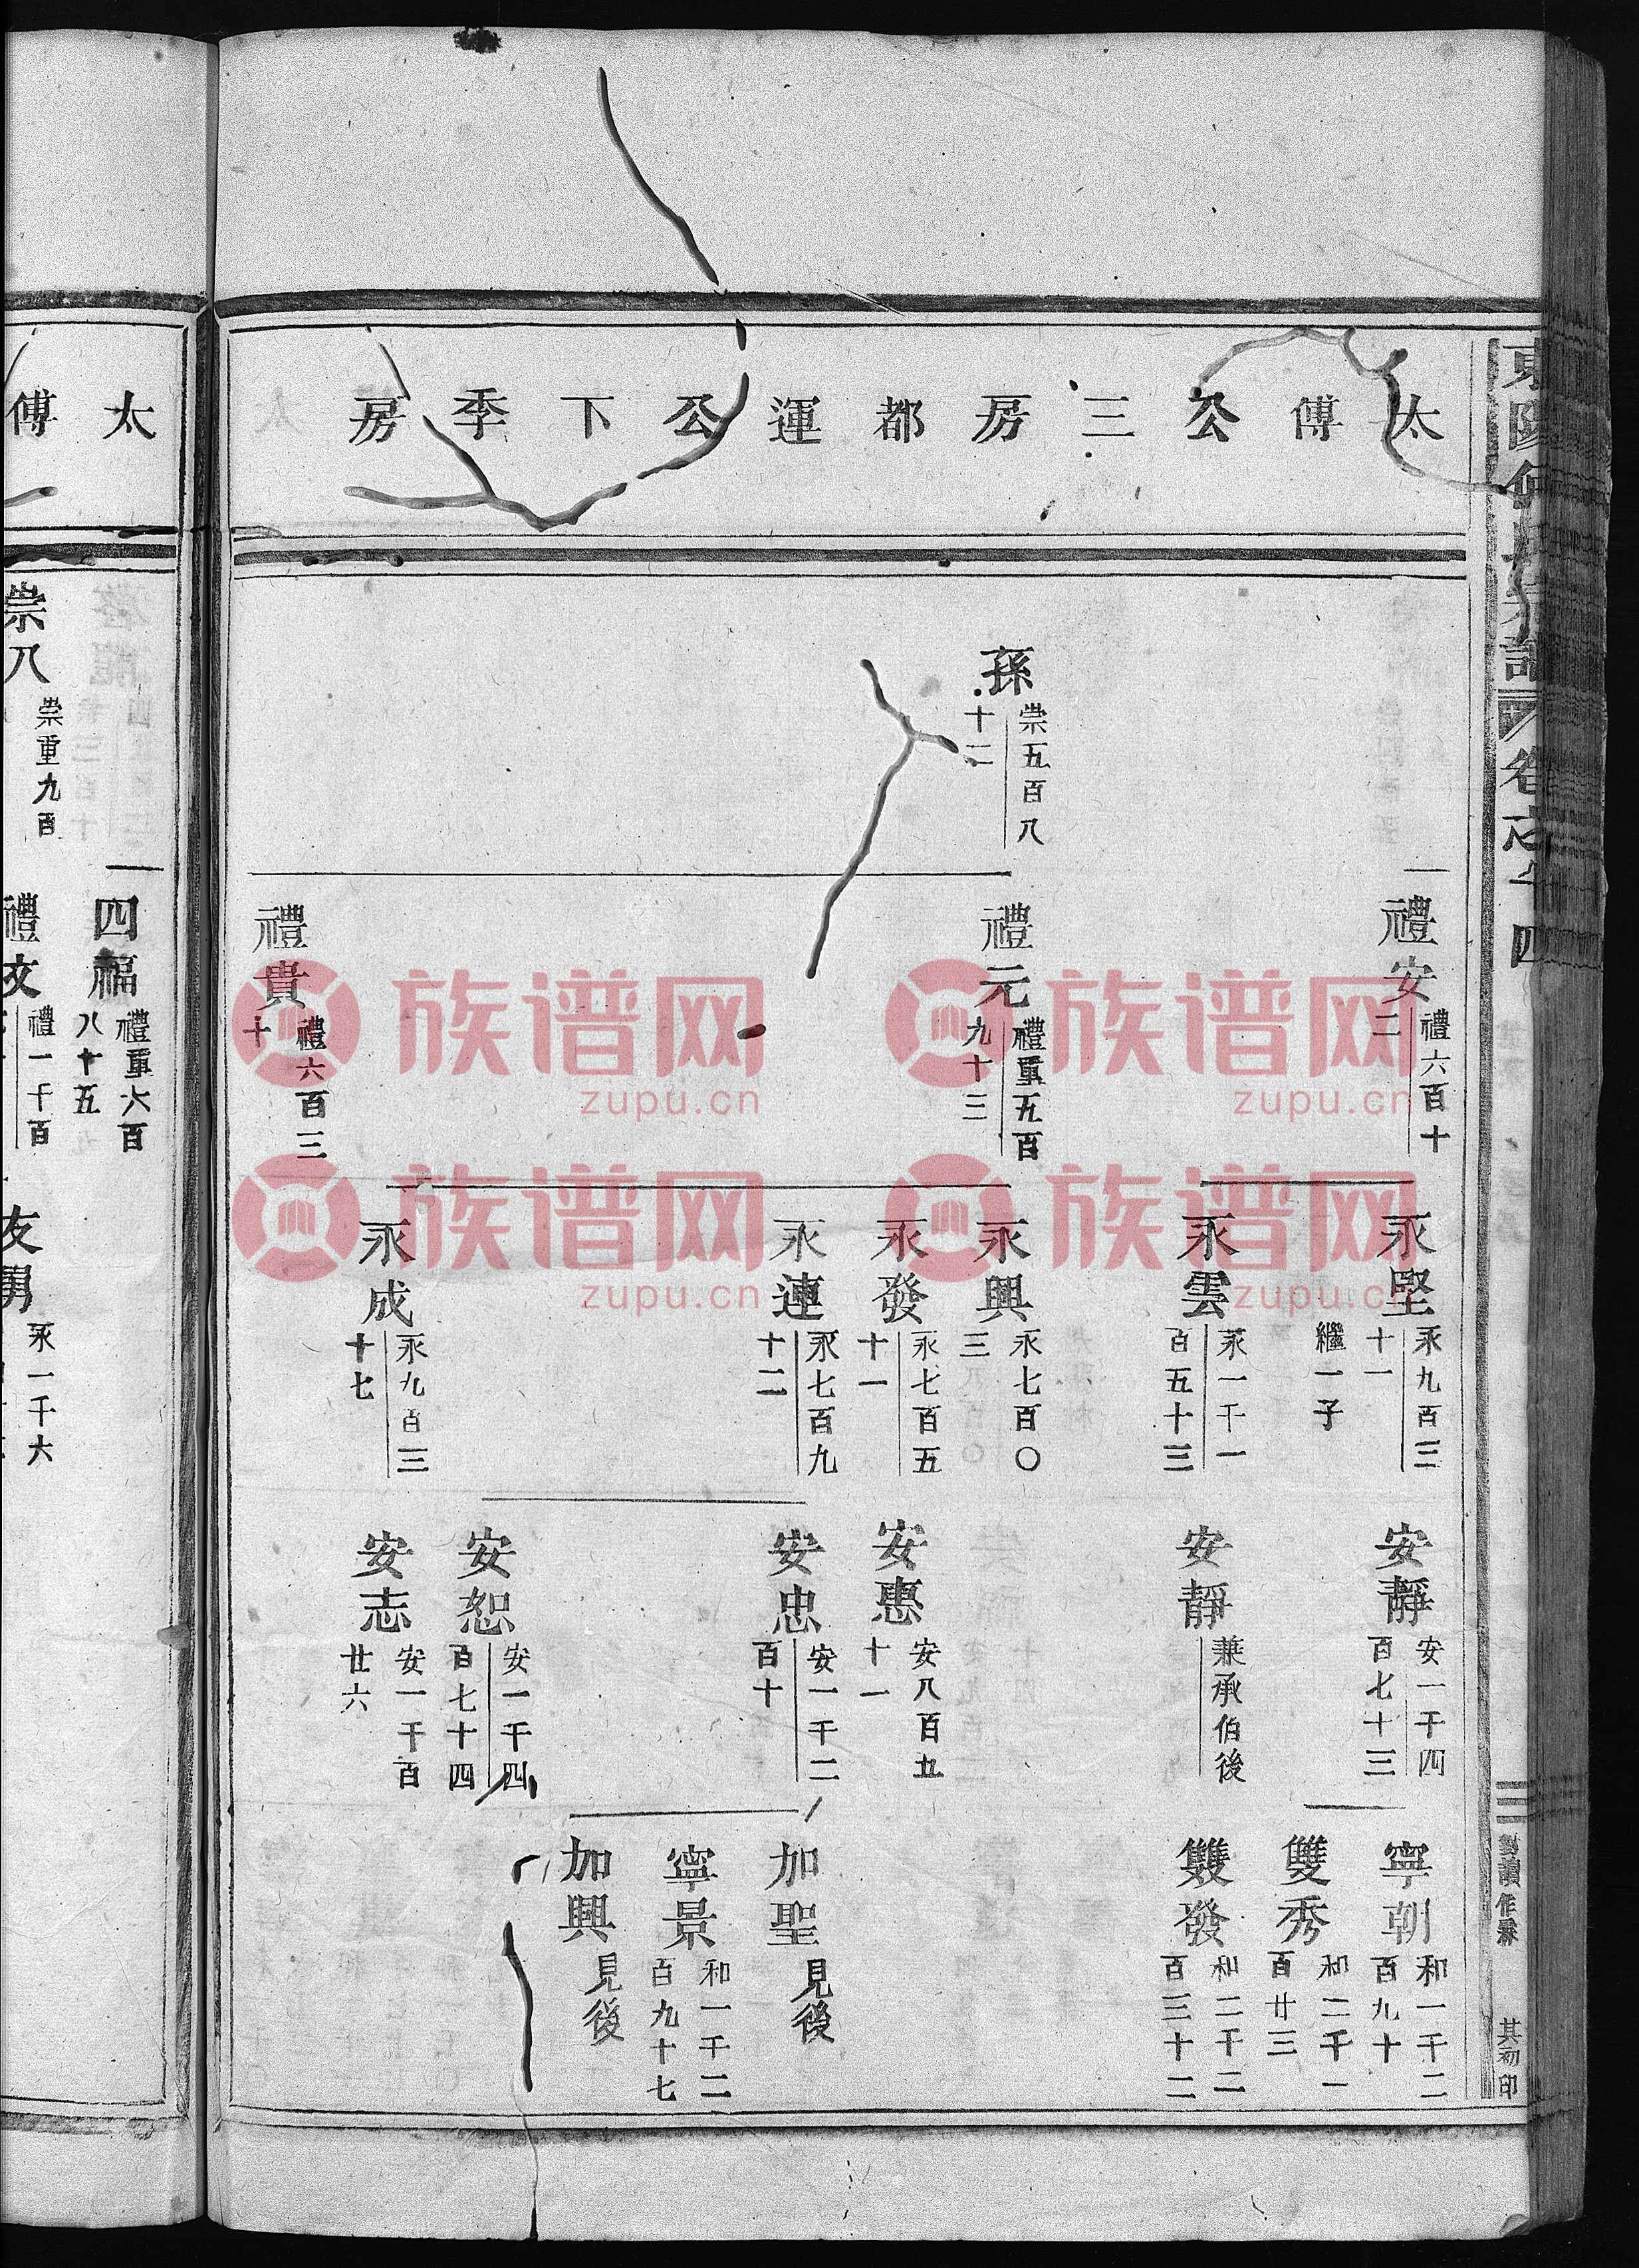 卷之十四
太傅公三房都運公下季房
孫
崇五百八
十二
禮安
禮六百十
二
禮元
禮重五百
九十三
禮貴
禮六百三
十
永堅
永九百三
十一
繼一子
永雲
永一千一
百五十三
永興
永七百〇
三
永發
永七百五
十一
永連
永七百九
十二
永成
永九百三
十七
安靜
安一千四
百七十三
安靜
兼承伯後
安惠
安八百九
十一
安忠
安一千二
百十
安恕
安一千四
百七十四
安志
安一千百
廿六
寧朝
和一千二
百九十
雙秀
和二千一
百廿三
雙發
和二千二
百三十二
加聖
見後
寧景
和一千二
百九十七
加興
見後
其初印
太傅
四福
禮重六百
八十五
崇八
崇重九百
禮文
禮一千百
友
永一千六
族谱网
zupu.cn
族谱网
zupu.cn
族谱网
zupu.cn
族谱网
zupu.cn